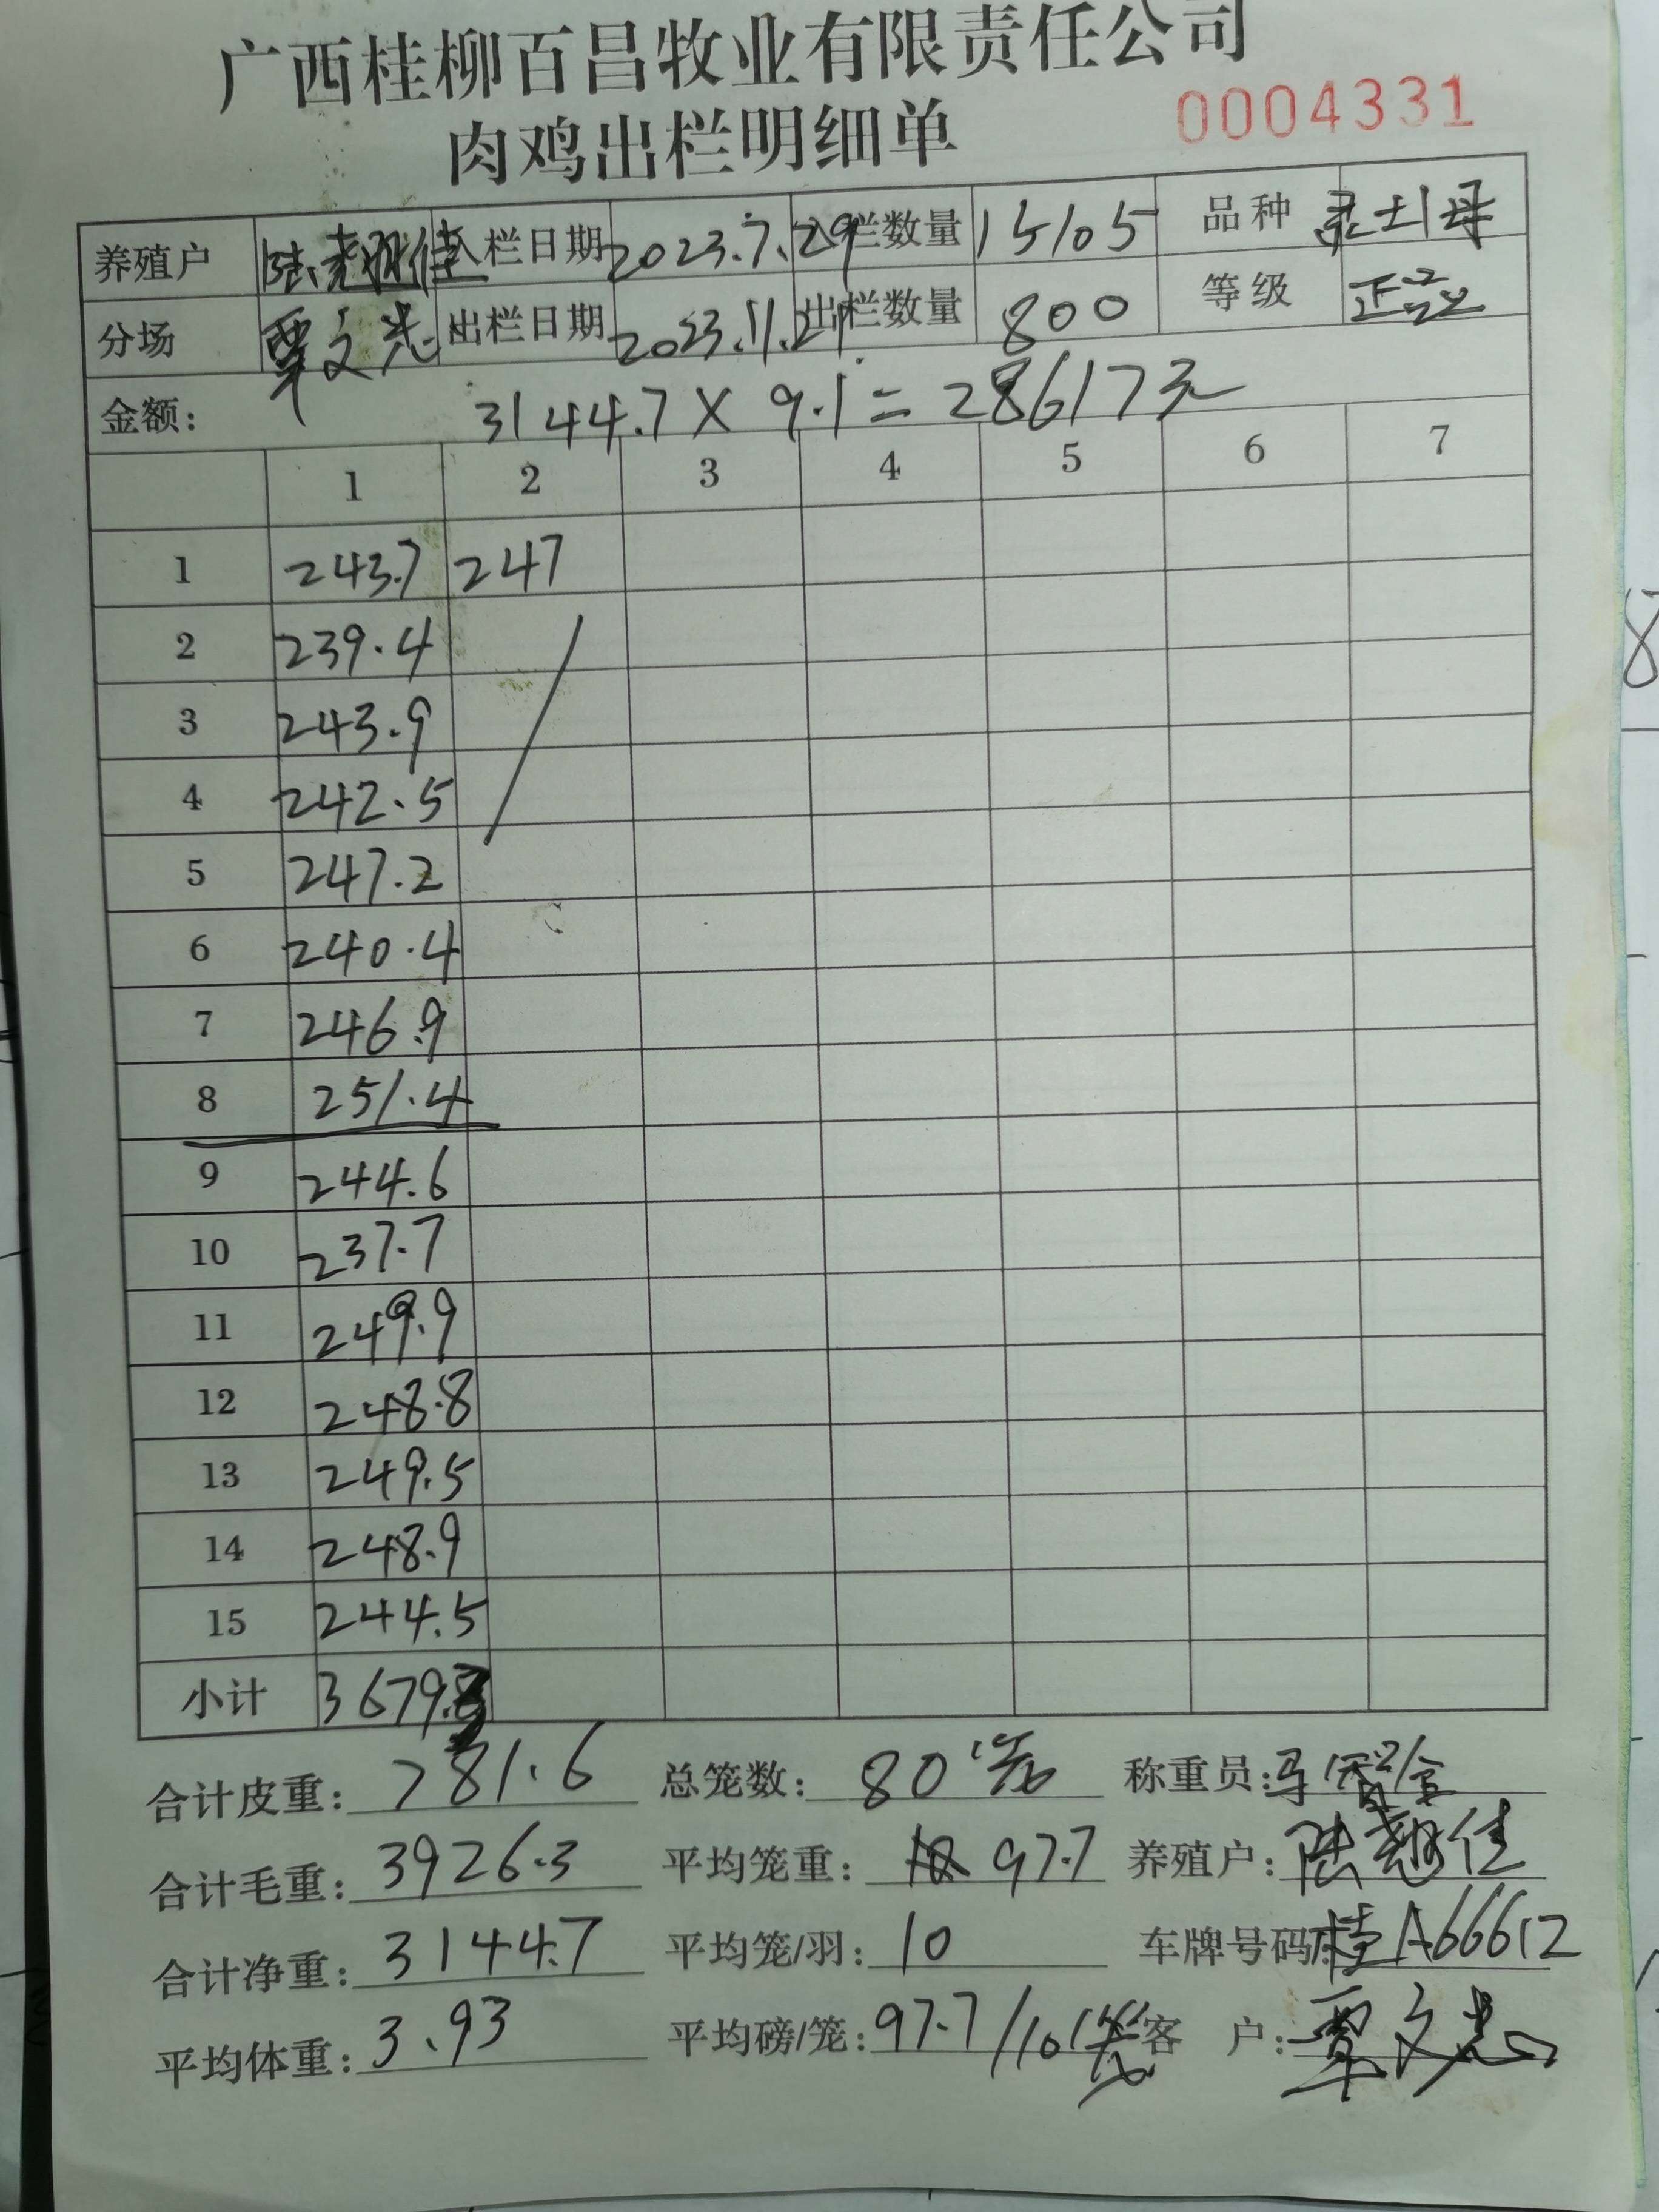 广西桂柳百昌牧业有限责任公司
肉鸡出栏明细单 0004331
养殖户 陆翘佳 入栏日期 2023.7.29 入栏数量 15105 品种 土1母
分场 覃文志 出栏日期 2023.11.21 出栏数量 800 等级 正品
金额: 3144.7 X 9.1 = 28617元
1 2 3 4 5 6 7
1 243.7 247
2 239.4
3 243.9
4 242.5
5 247.2
6 240.4
7 246.9
8 251.4
9 244.6
10 237.7
11 249.9
12 248.8
13 249.5
14 248.9
15 244.5
小计 3679.3
合计皮重: 781.6 总笼数: 80笼 称重员: 马
合计毛重: 3926.3 平均笼重: 97.7 养殖户: 陆翘佳
合计净重: 3144.7 平均笼/羽: 10 车牌号码: 桂A66612
平均体重: 3.93 平均磅/笼: 97.7/10笼 客 户: 覃文志